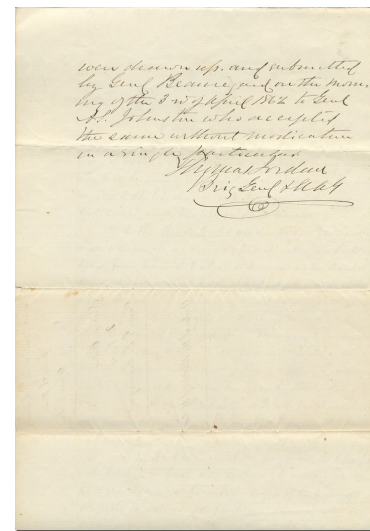 were drawn up and submitted
by Genl Beauregard on the morn
ing of the 3rd of April 1862 to Genl
A.S. Johnston who accepted
the same without modication
in a single particular
Thomas Jordan
Brig Genl & AAG